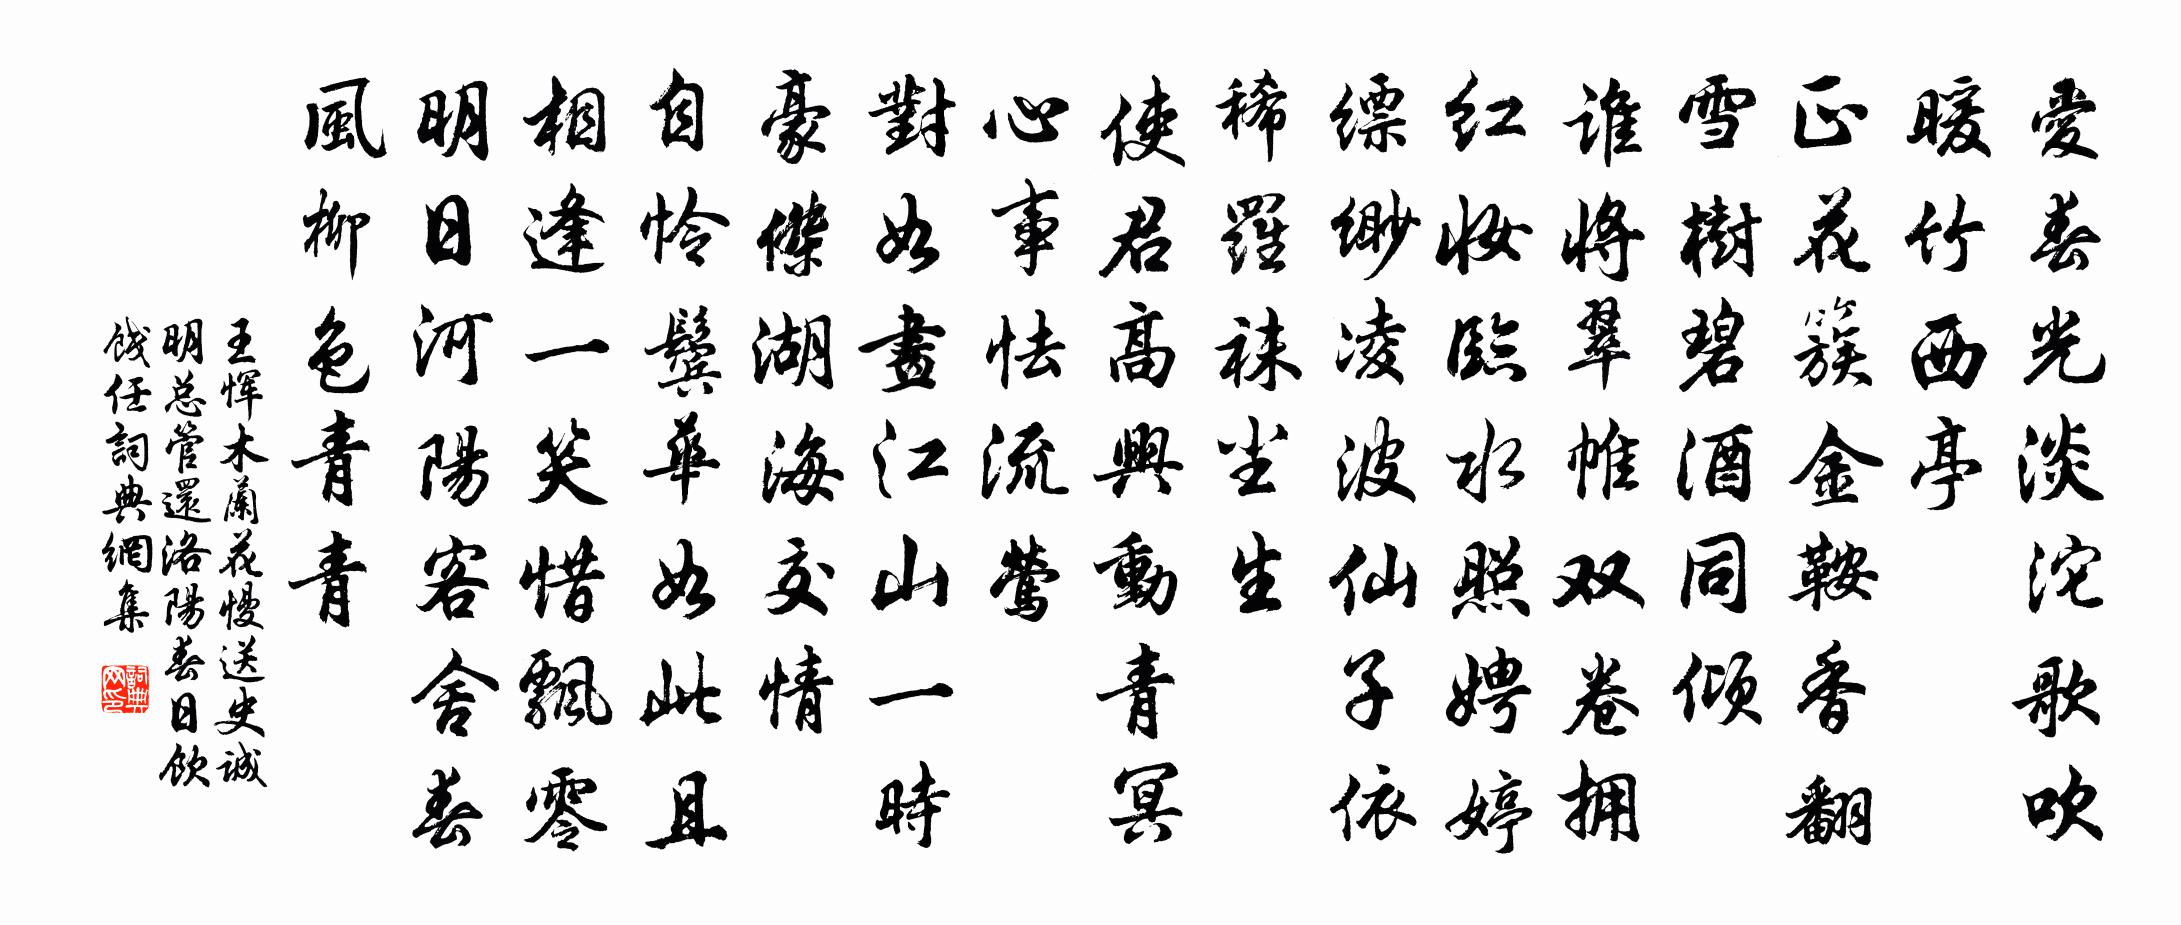 愛春光淡沱歌吹
暖竹西亭
正花簇金鞍香翻
雪樹碧酒同倾
谁將翠帷双卷拥
红妆臨水照娉婷
缥缈凌波仙子依
稀羅袜尘生
使君高興動青冥
心事怯流莺
對如畫江山一時
豪傑湖海交情
自怜鬓華如此且
相逢一笑惜飄零
明日河陽客舍春
風柳色青青
王恽木蘭花慢送史誠
明总管還洛陽春日飲
餞任詞典網集
詞典网印